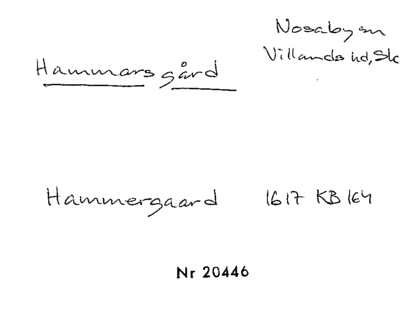 Nosaby sn
Villands hd, Sk
Hammars gård
Hammergaard 1617 KB 164
Nr 20446